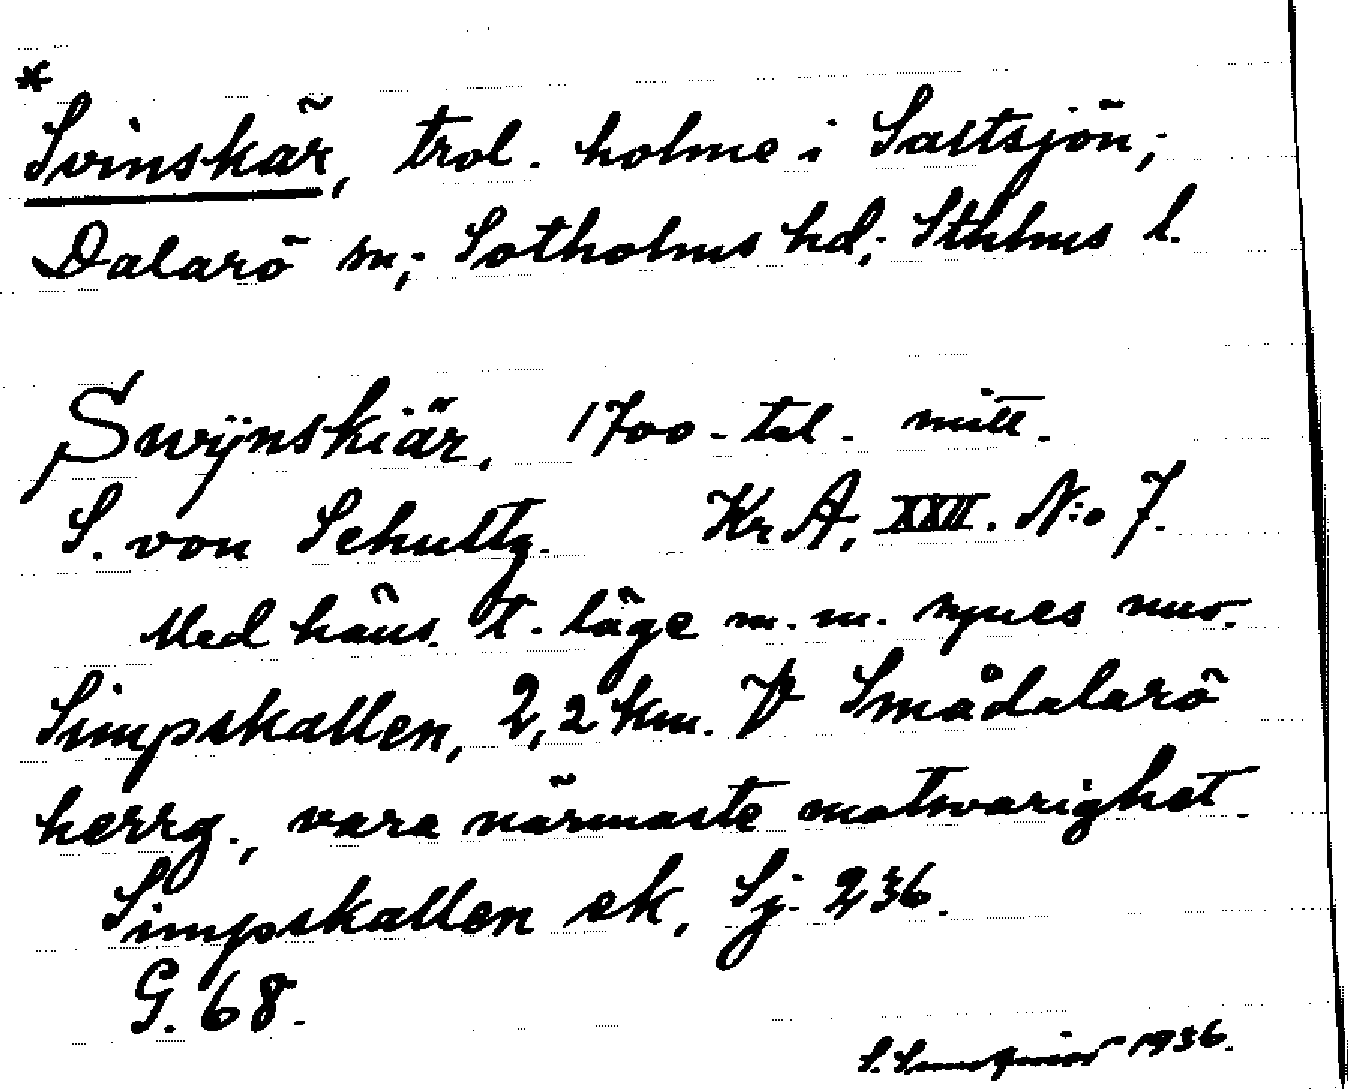 *
Svinskär, trol. holme i Saltsjön;
Dalarö sn; Sotholms hd; Sthlms l.
Swijnskiär, 1700-tal. mitt.
S. von Schultz. Kr A, XXII. N:o 7.
Med häns. t. läge m. m. synes nuv.
Simpskallen, 2,2 km. V Smådalarö
herrg., vara närmaste motsvarighet.
Simpskallen ek, Sj. 236.
G. 68.
S. 1936.